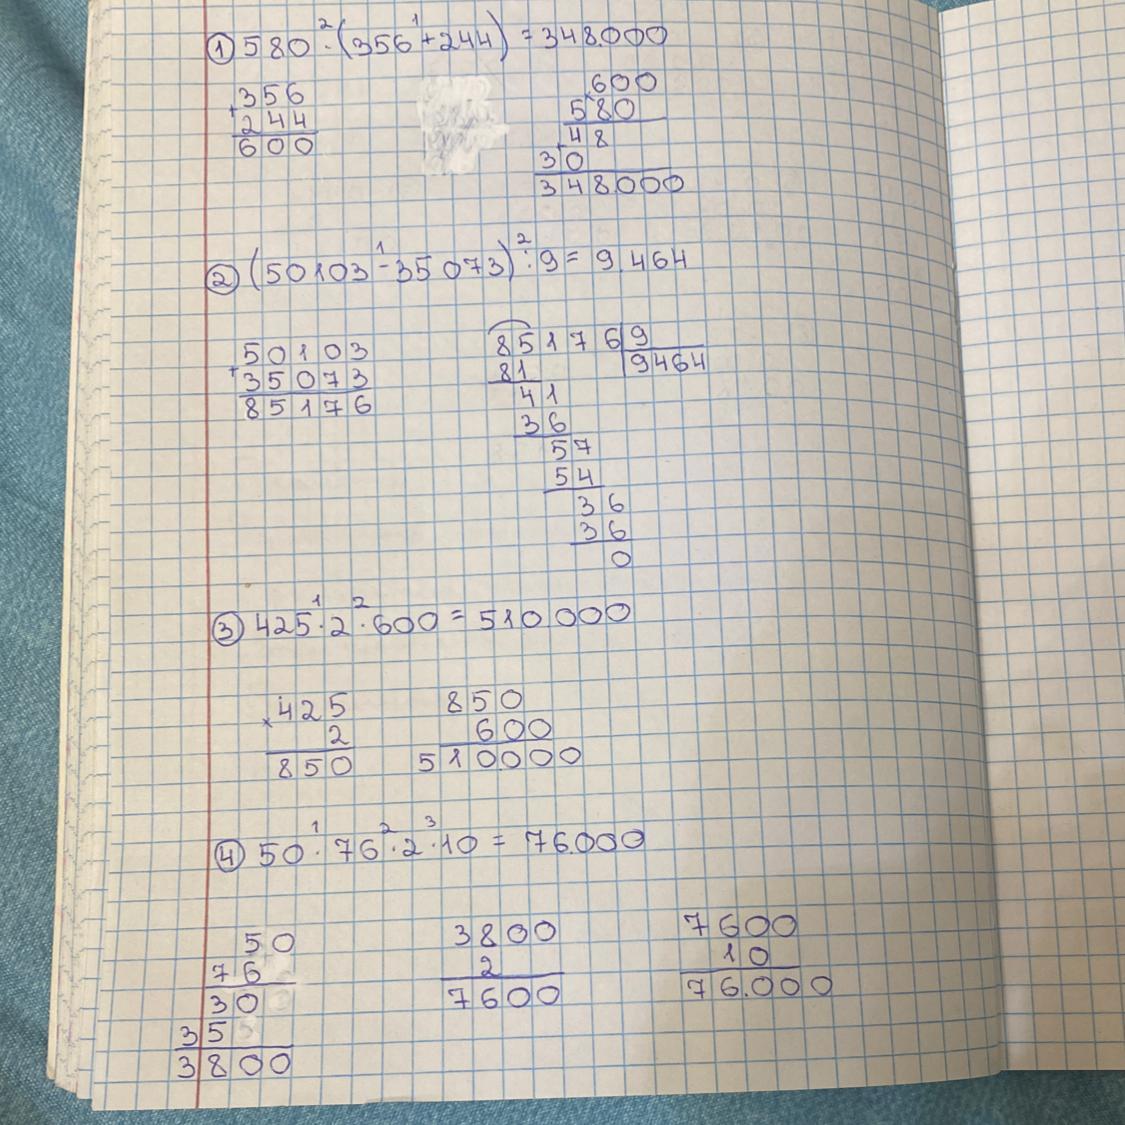 ① 580 ² · (356 ¹ + 244) = 348.000
+ 356
244
600
× 600
580
+ 48
30
348000
② (50103 ¹ - 35 073) ² : 9 = 9.464
+ 50103
35073
85176
85176 9
81 9464
41
36
57
54
36
36
0
③ 425 ¹ · 2 ² · 600 = 510 000
× 425
2
850
850
600
510000
④ 50 ¹ · 76 ² · 2 ³ · 10 = 76.000
50
76
30
35
3800
3800
2
7600
7600
10
76.000